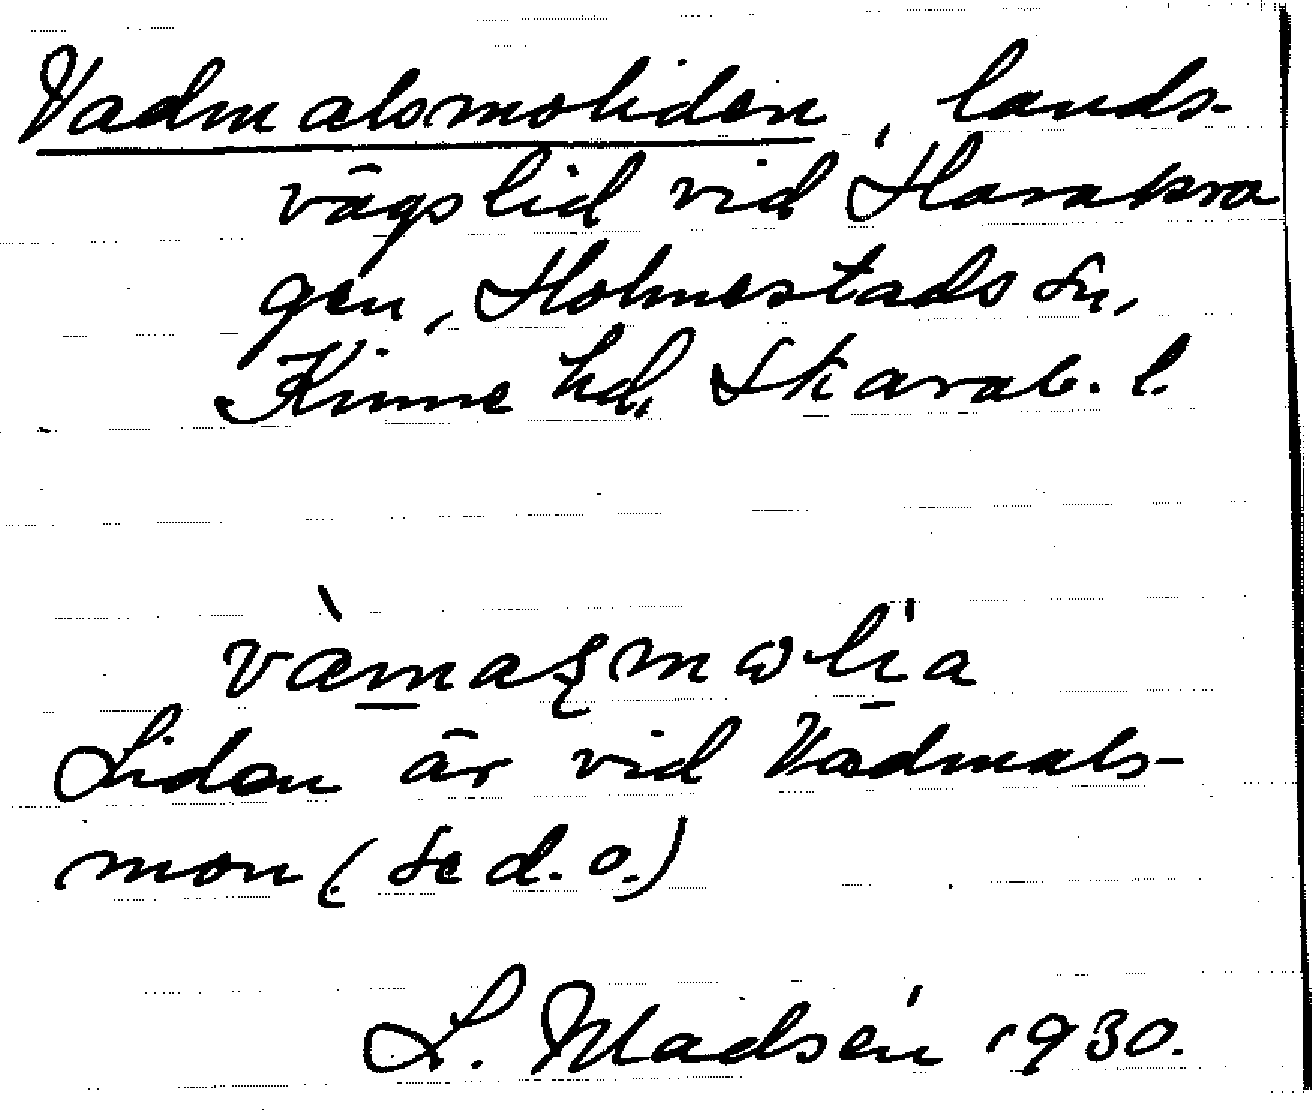 Vadmalsmoliden, lands-
vägslid vid Harakra
gen, Holmestads sn,
Kinne hd, Skarab. l.
Liden är vid Vadmals-
mon (se d. o.)
L. Madsén 1930.